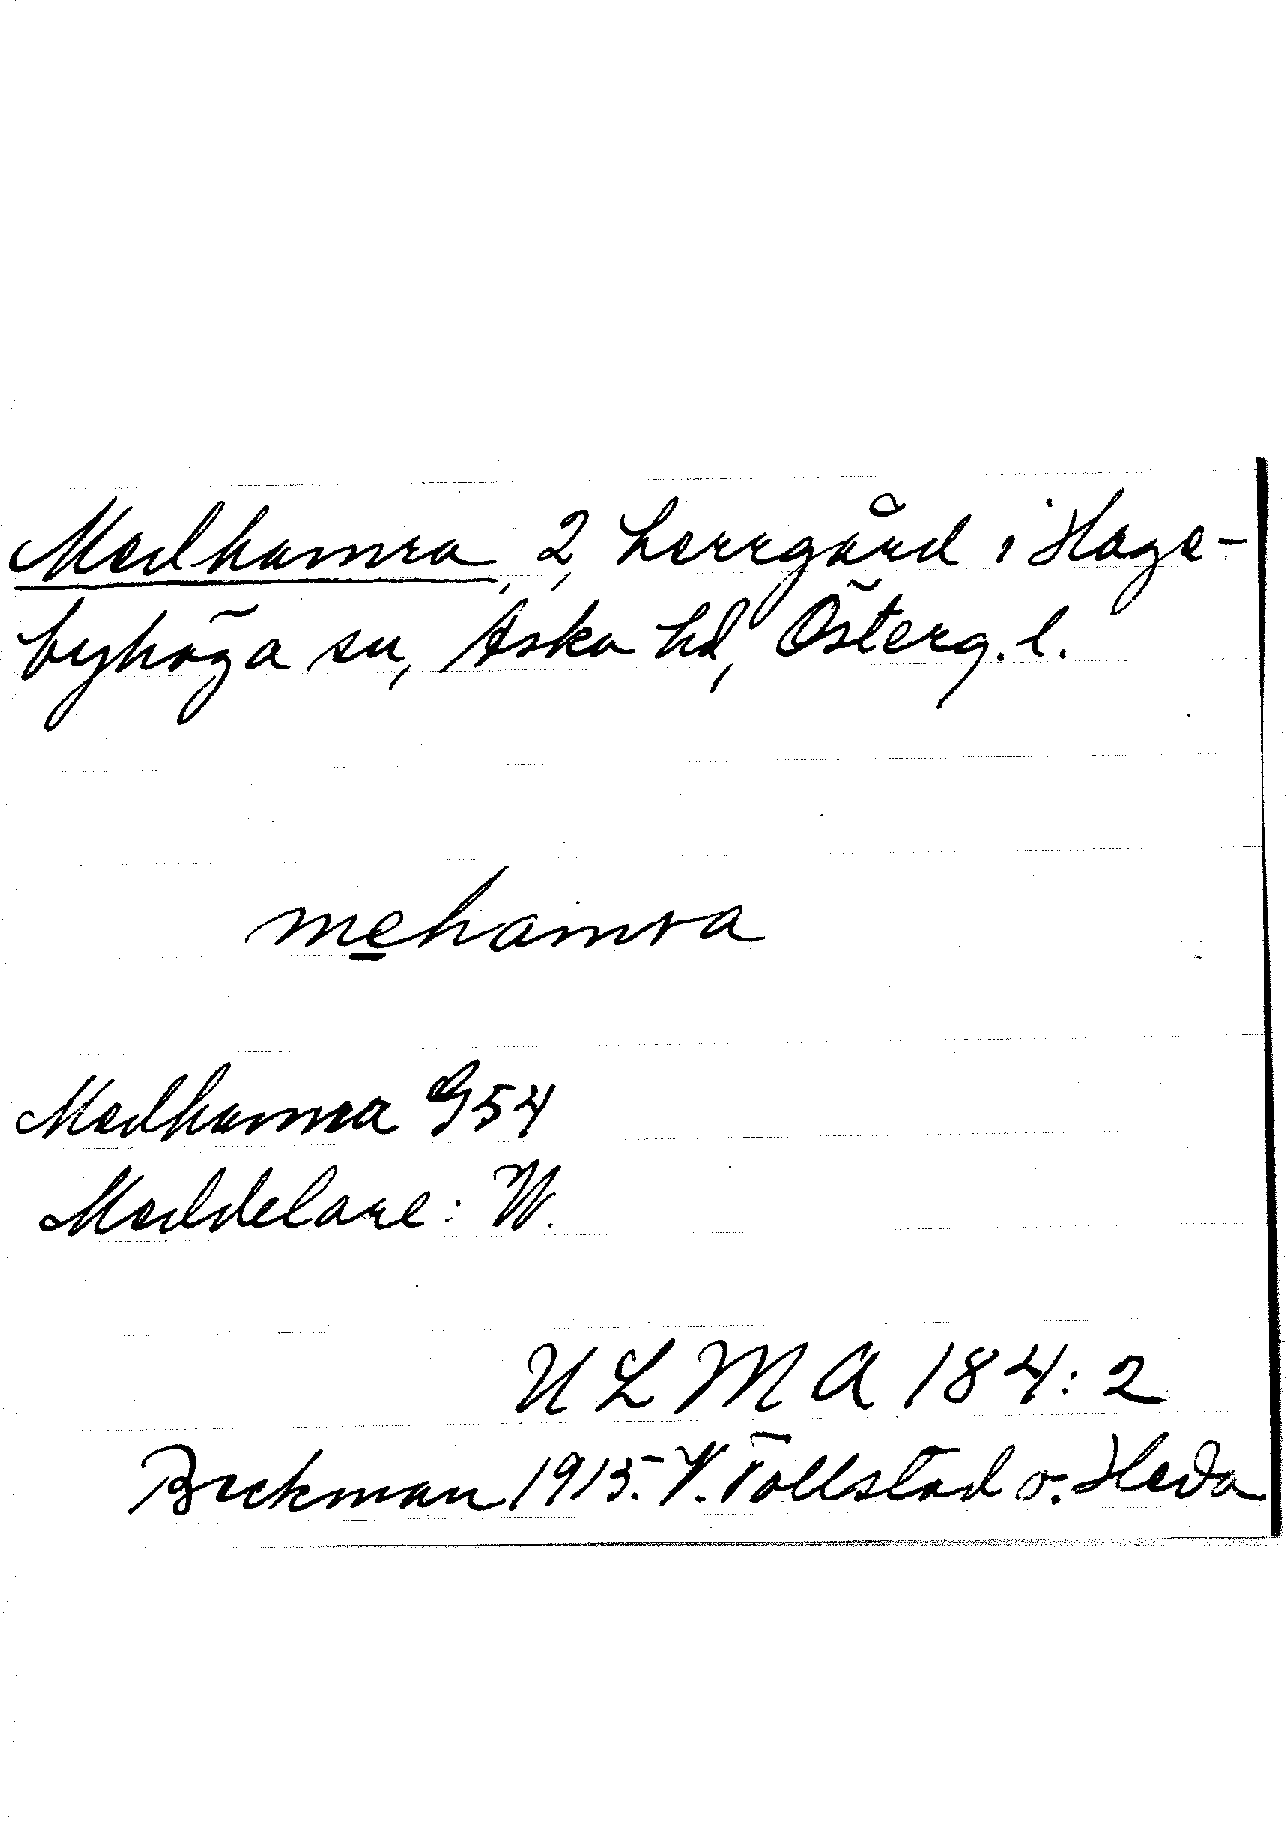 Medhamra, 2, herrgård i Hage-
byhöga sn, Aska hd, Österg. l.
mehamra
Medhamra G54
Meddelare: W.
ULMA 184:2
Beckman 1915. V. Tollstad o. Heda